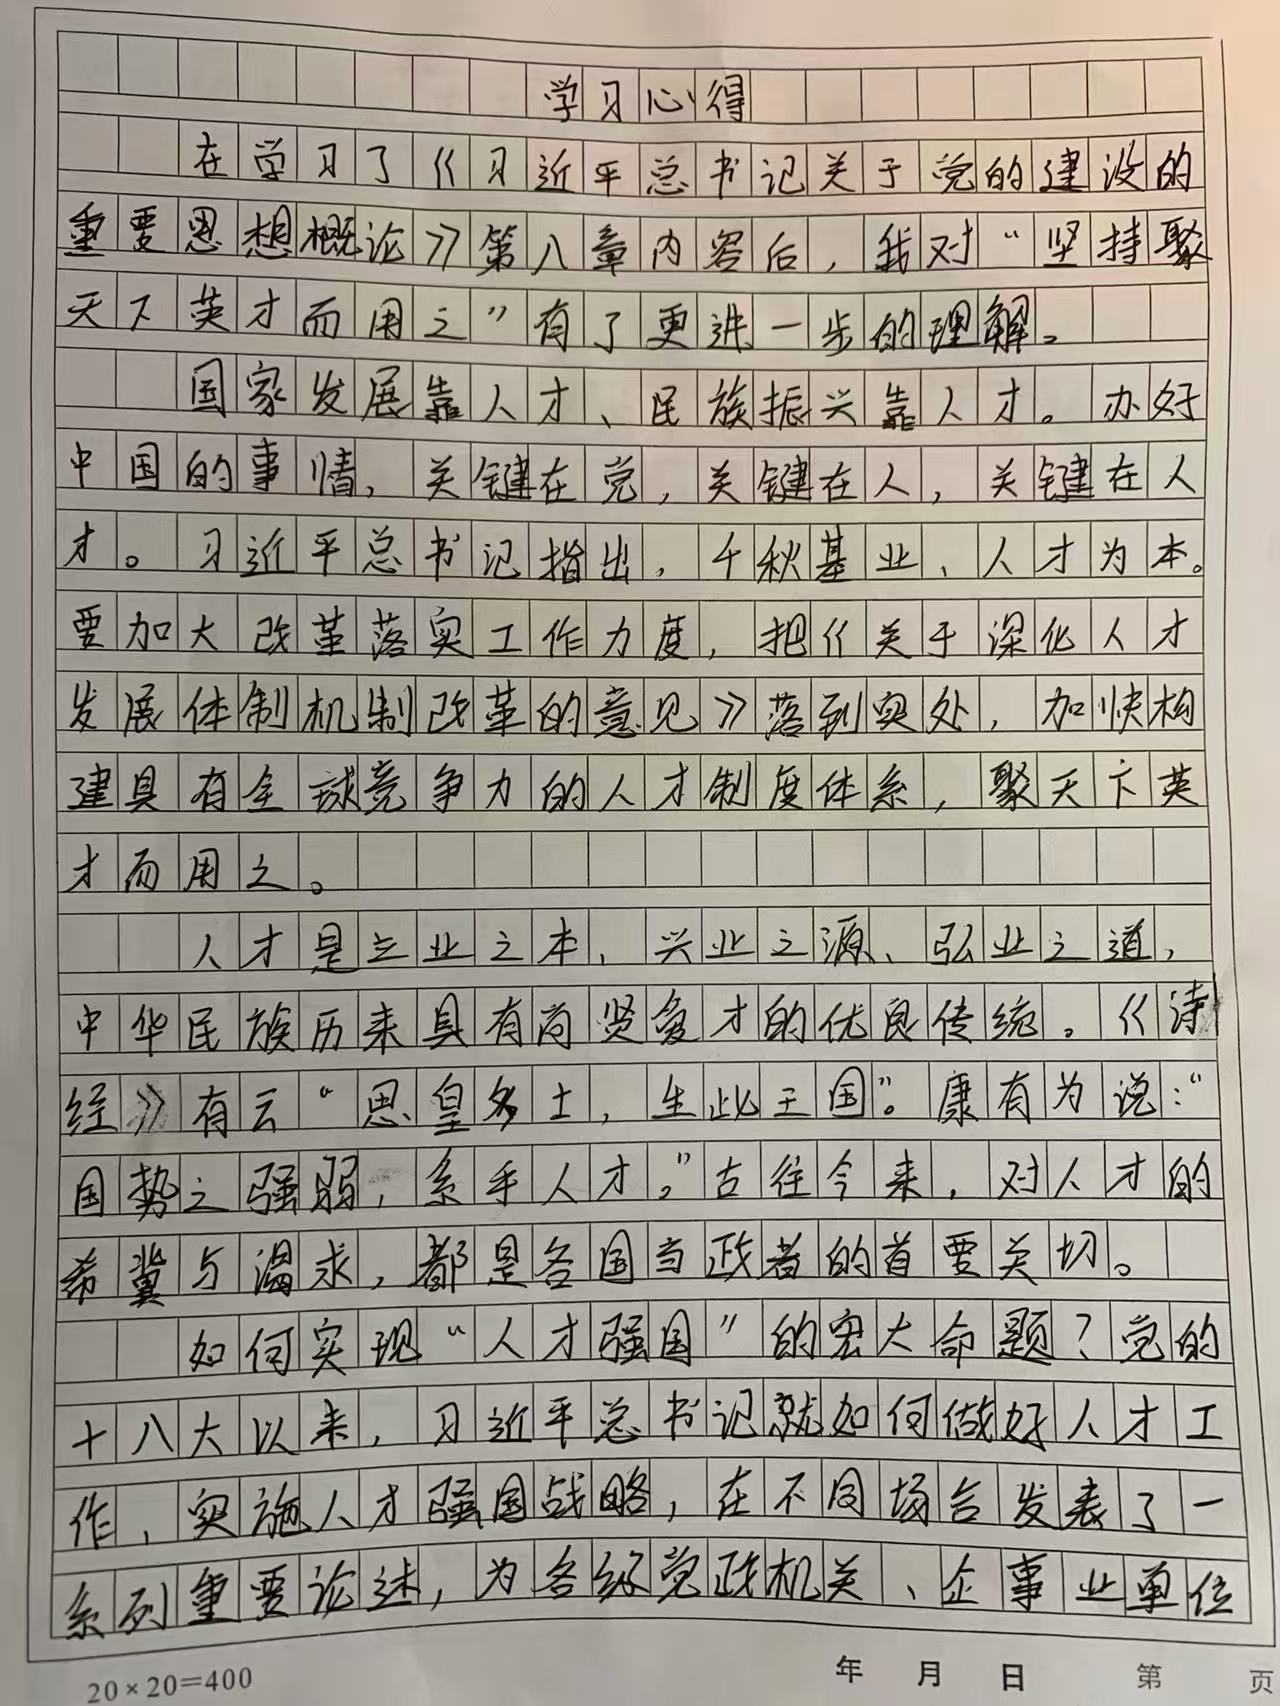 学习心得
在学习了《习近平总书记关于党的建设的
重要思想概论》第八章内容后，我对“坚持聚
天下英才而用之”有了更进一步的理解。
国家发展靠人才、民族振兴靠人才。办好
中国的事情，关键在党，关键在人，关键在人
才。习近平总书记指出，千秋基业、人才为本。
要加大改革落实工作力度，把《关于深化人才
发展体制机制改革的意见》落到实处，加快构
建具有全球竞争力的人才制度体系，聚天下英
才而用之。
人才是立业之本、兴业之源、弘业之道，
中华民族历来具有尚贤爱才的优良传统。《诗
经》有云“思皇多士，生此王国”。康有为说：“
国势之强弱，系乎人才。”古往今来，对人才的
希冀与渴求，都是各国当政者的首要关切。
如何实现“人才强国”的宏大命题？党的
十八大以来，习近平总书记就如何做好人才工
作、实施人才强国战略，在不同场合发表了一
系列重要论述，为各级党政机关、企事业单位
20×20=400 年 月 日 第 页